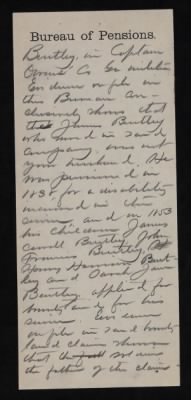 Bureau of Pensions.
Bentley, in Captain
Co Ga militia
Evidence on file in
this Bureau con-
clusively shows that
the James Bentley
who served in said
company, was not
your husband. He
was pensioned in
for a disability
incurred in the
service, and in 1853
his children James
Carroll Bentley, John
Francis Bentley,
Henry Harrison Bent-
ley and Sarah Jane
Bentley applied for
bounty land for his
service. Evidence
on file in said bounty
land claim shows
that the soldier was
the father of the claim-